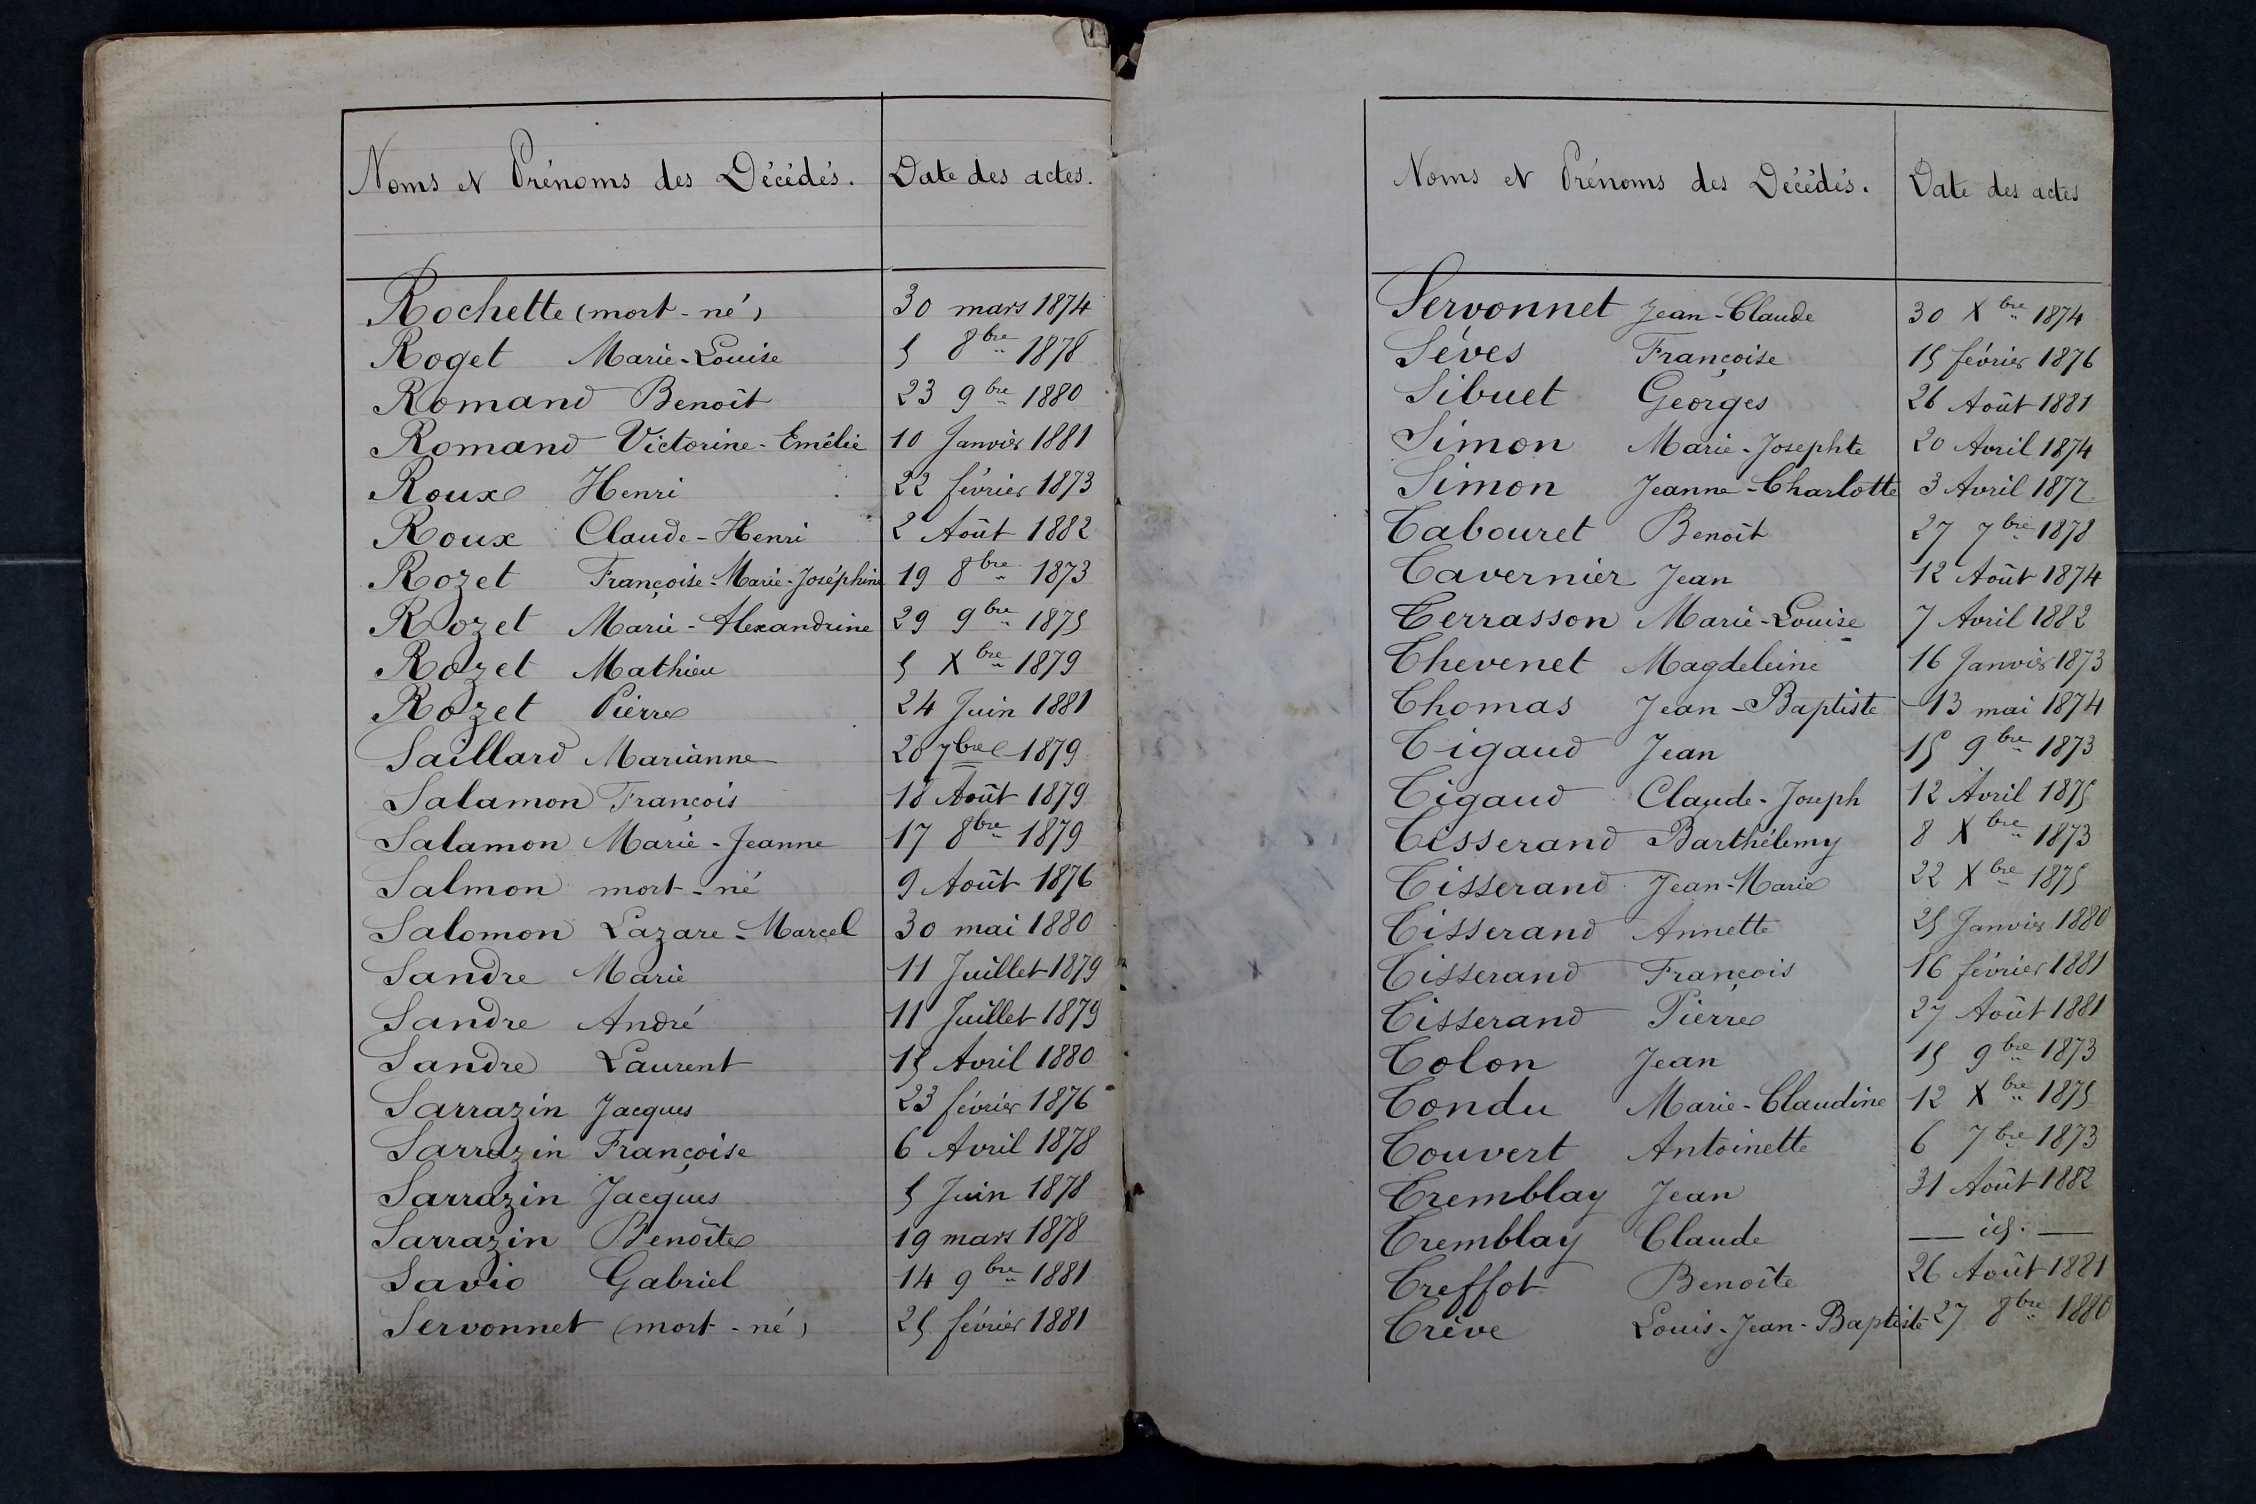 Noms et Prénoms des Décédés. Date des actes.
Rochette (mort-né) 30 mars 1874
Roget Marie-Louise 5 8bre 1878
Romand Benoît 23 9bre 1880
Romand Victorine-Emélie 10 Janvier 1881
Roux Henri 22 février 1873
Roux Claude-Henri 2 Août 1882
Rozet Françoise-Marie-Joséphine 19 8bre 1873
Rozet Marie-Alexandrine 29 9bre 1875
Rozet Mathieu 5 Xbre 1879
Rozet Pierre 24 Juin 1881
Saillard Marianne 20 7bre 1879
Salamon François 18 Août 1879
Salamon Marie-Jeanne 17 8bre 1879
Salmon mort-né 9 Août 1876
Salomon Lazare-Marcel 30 mai 1880
Sandre Marie 11 Juillet 1879
Sandre André 11 Juillet 1879
Sandre Laurent 15 Avril 1880
Sarrazin Jacques 23 février 1876
Sarrazin Françoise 6 Avril 1878
Sarrazin Jacques 5 Juin 1878
Sarrazin Benoîte 19 mars 1878
Savio Gabriel 14 9bre 1881
Servonnet (mort-né) 25 février 1881
Noms et Prénoms des Décédés. Date des actes
Servonnet Jean-Claude 30 Xbre 1874
Séves Françoise 15 février 1876
Sibuet Georges 26 Août 1881
Simon Marie-Josephte 20 Avril 1874
Simon Jeanne-Charlotte 3 Avril 1877
Tabouret Benoît 27 7bre 1878
Tavernier Jean 12 Août 1874
Terrasson Marie-Louise 7 Avril 1882
Thevenet Magdeleine 16 Janvier 1873
Thomas Jean-Baptiste 13 mai 1874
Tigaud Jean 15 9bre 1873
Tigaud Claude-Joseph 12 Avril 1875
Tisserand Barthélemy 8 Xbre 1873
Tisserand Jean-Marie 22 Xbre 1875
Tisserand Annette 25 Janvier 1880
Tisserand François 16 février 1881
Tisserand Pierre 27 Août 1881
Tolon Jean 15 9bre 1873
Tondu Marie-Claudine 12 Xbre 1875
Touvert Antoinette 6 7bre 1873
Tremblay Jean 31 Août 1882
Tremblay Claude — id. —
Treffot Benoîte 26 Août 1881
Trève Louis-Jean-Baptiste 27 8bre 1880